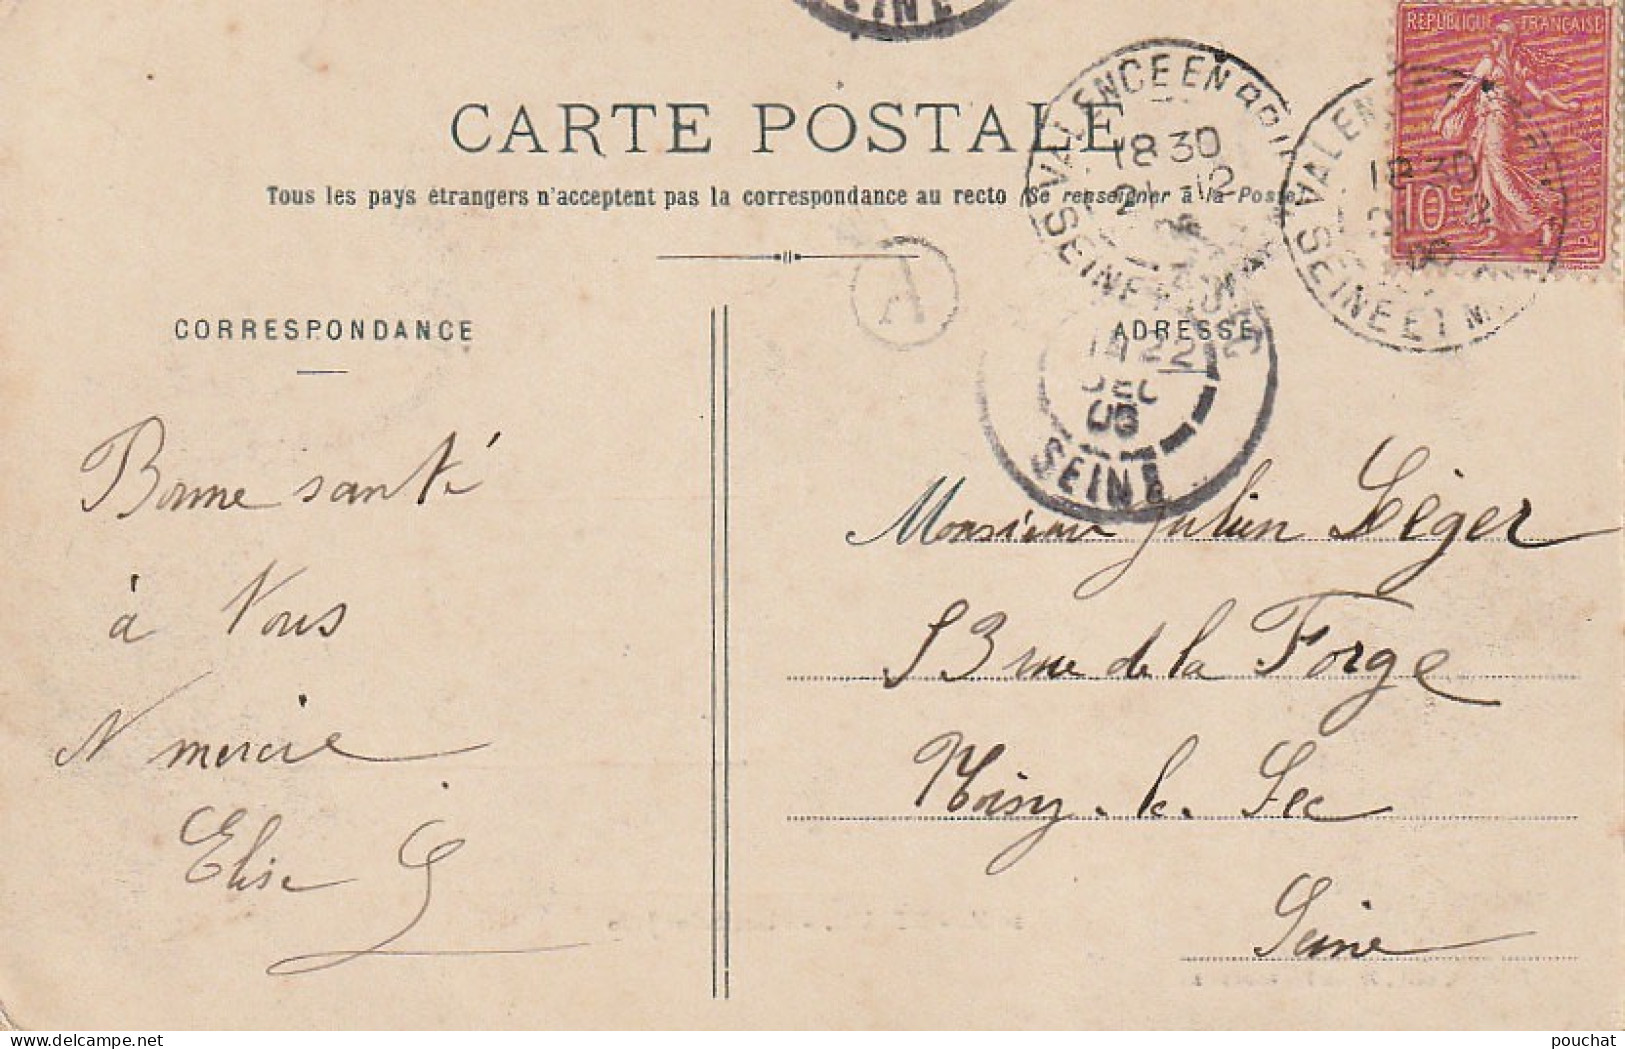 SEINE
REPUBLIQUE FRANCAISE
10c
POSTES
CARTE POSTALE
VALENCE EN BRIE
18 30
21 12
SEINE ET M
VALEN
18 30
SEINE ET M
Tous les pays étrangers n'acceptent pas la correspondance au recto (Se renseigner à la Poste)
A
CORRESPONDANCE
ADRESSE
22
DEC
SEINE
Bonne santé
à Vous
N mercie
Elise L
Monsieur Julien Léger
53 rue de la Forge
Noisy-le-Sec
Seine
pouchat